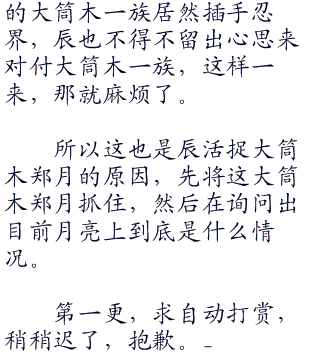 的大筒木一族居然插手忍
界，辰也不得不留出心思来
对付大筒木一族，这样一
来，那就麻烦了。
所以这也是辰活捉大筒
木郑月的原因，先将这大筒
木郑月抓住，然后在询问出
目前月亮上到底是什么情
况。
第一更，求自动打赏，
稍稍迟了，抱歉。_